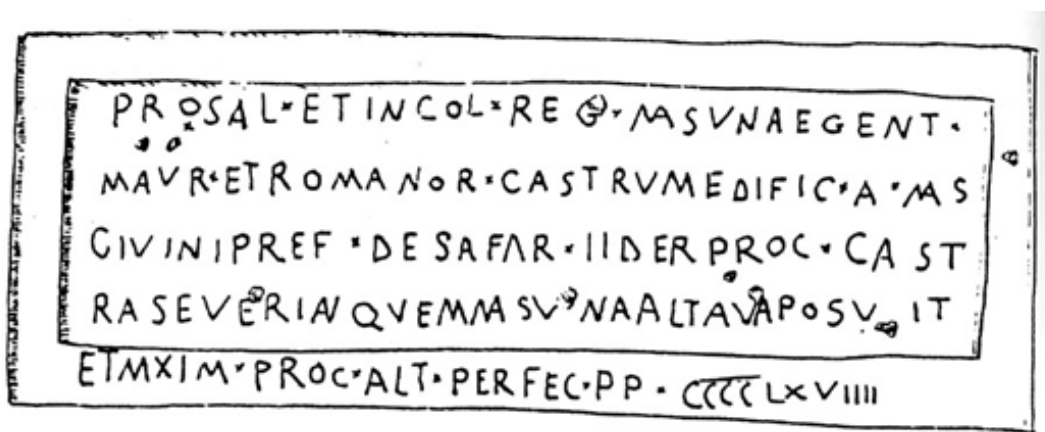 PROSAL·ETINCOL·REG·MASVNAEGENT·
MAVR·ETROMANOR·CASTRVMEDIFIC·A·MAS
GIVINIPREF·DESAFAR·IIDERPROC·CAST
RASEVERIANQVEMMASVNAALTAVAPOSVIT
ETMAXIM·PROC·ALT·PERFEC·PP·CCCCLXVIIII